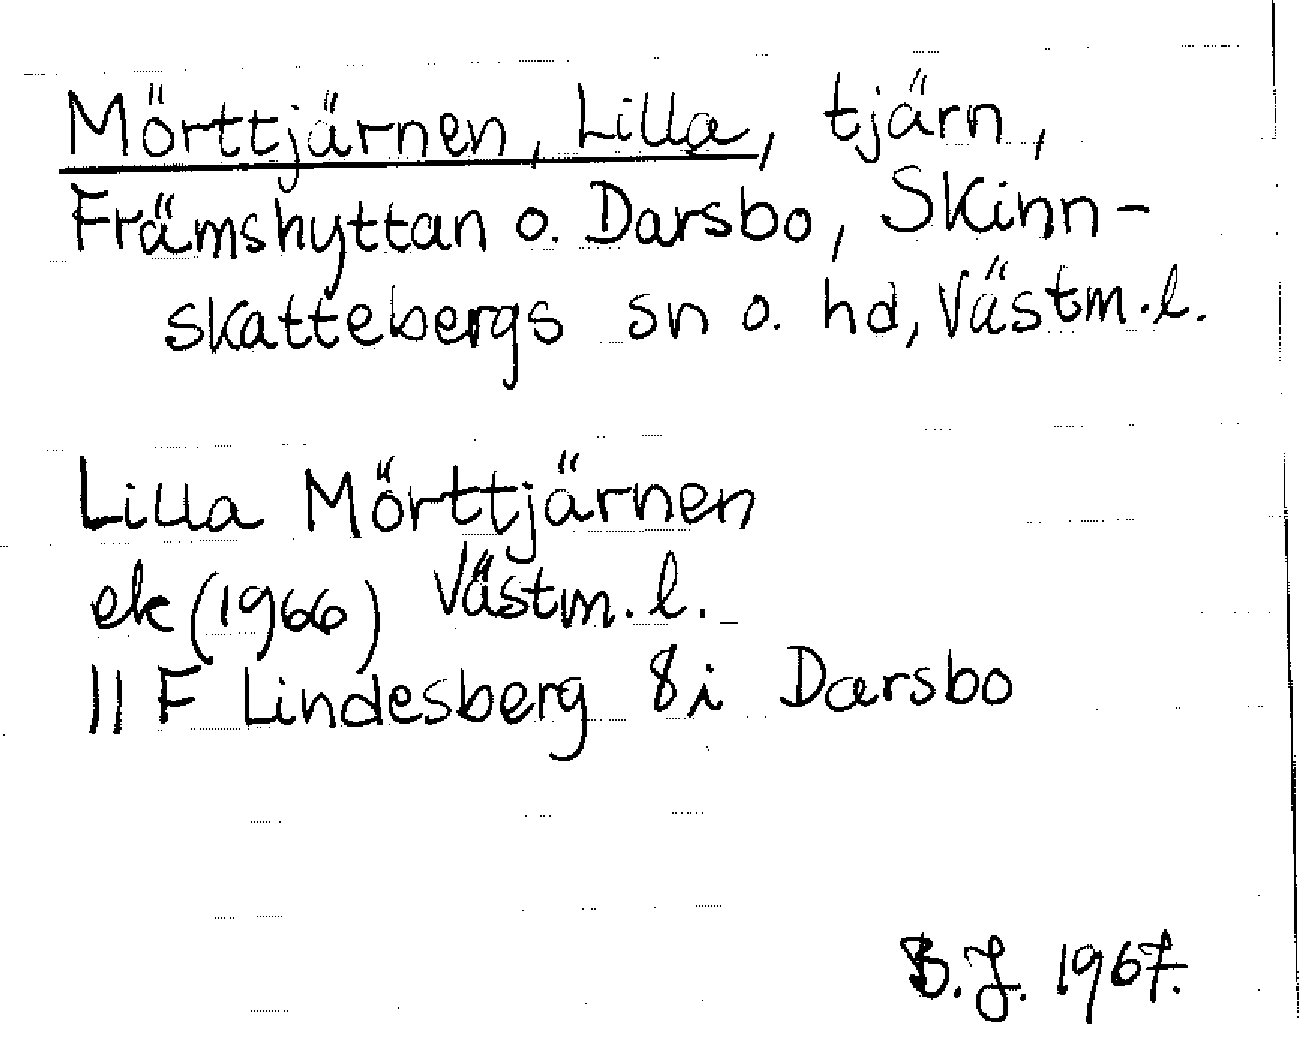 Mörttjärnen, Lilla, tjärn,
Främshyttan o. Darsbo, Skinn-
skattebergs sn o. hd, Västm.l.
Lilla Mörttjärnen
ek (1966) Västm.l.
11 F Lindesberg 8i Darsbo
B.J. 1967.